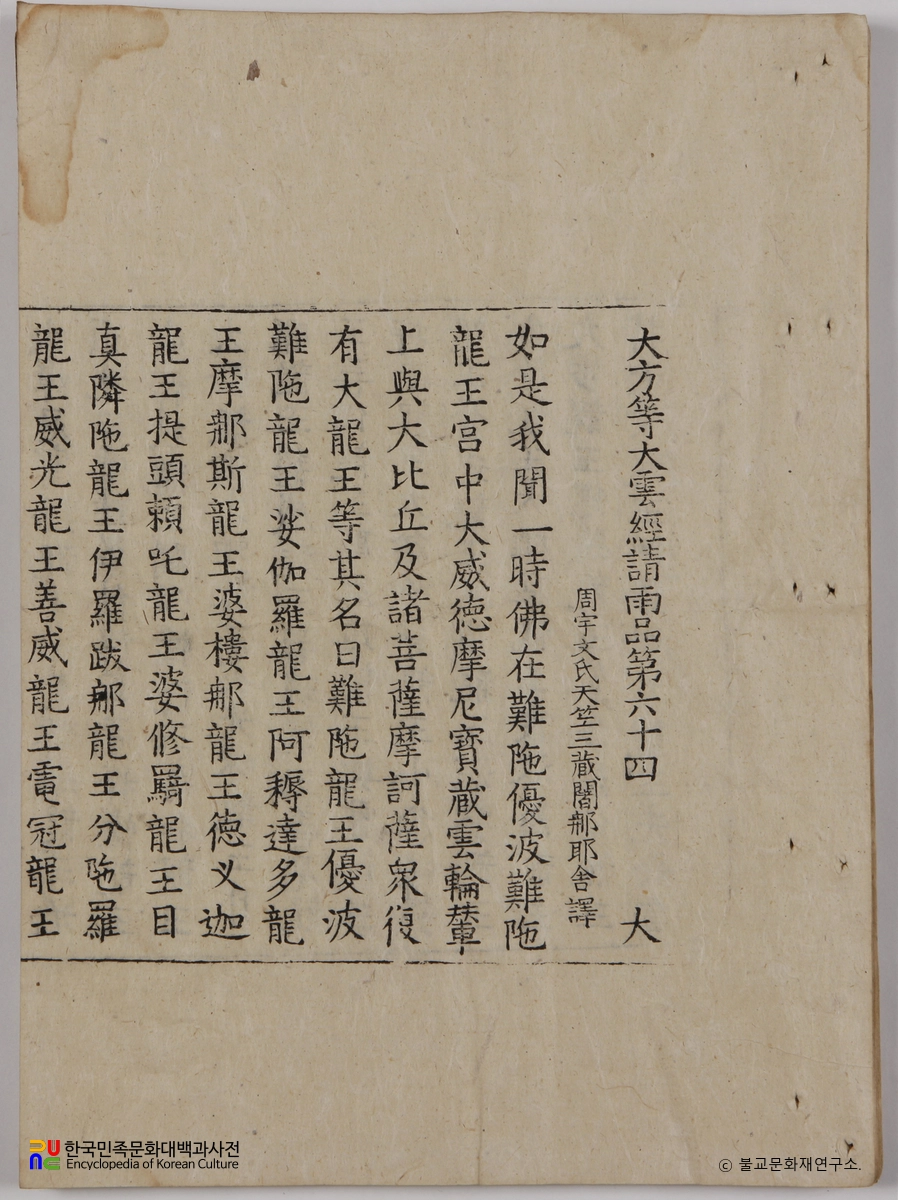 大方等大雲經請雨品第六十四 大
周宇文氏天竺三藏闍那耶舍譯
如是我聞一時佛在難陁優波難陁
龍王宮中大威德摩尼寶藏雲輪輦
上與大比丘及諸菩薩摩訶薩衆復
有大龍王等其名曰難陁龍王優波
難陁龍王娑伽羅龍王阿耨達多龍
王摩那斯龍王婆樓那龍王德叉迦
龍王提頭賴吒龍王婆修羇龍王目
真隣陁龍王伊羅跋那龍王分陁羅
龍王威光龍王善威龍王電冠龍王
한국민족문화대백과사전
Encyclopedia of Korean Culture
© 불교문화재연구소.